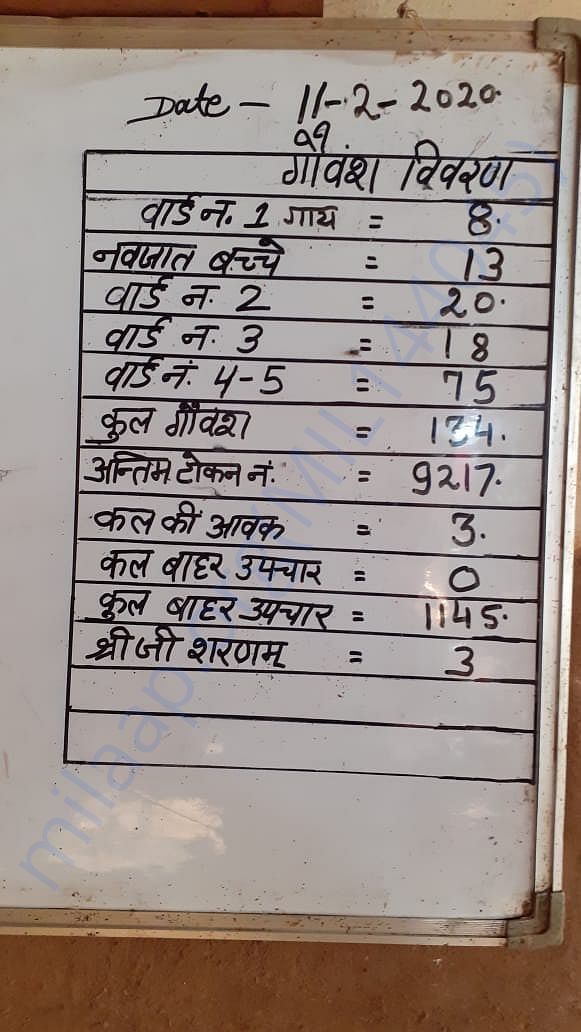 Date - 11-2-2020.
09
गौवंश विवरण
वार्ड न. 1 गाय = 8.
नवजात बच्चे = 13
वार्ड न. 2 = 20.
वार्ड न. 3 = 18
वार्ड नं. 4-5 = 75
कुल गौवंश = 134.
अन्तिम टोकन नं. = 9217.
कल की आवक = 3.
कल बाहर उपचार = 0
कुल बाहर उपचार = 1145.
श्री जी शरणम् = 3